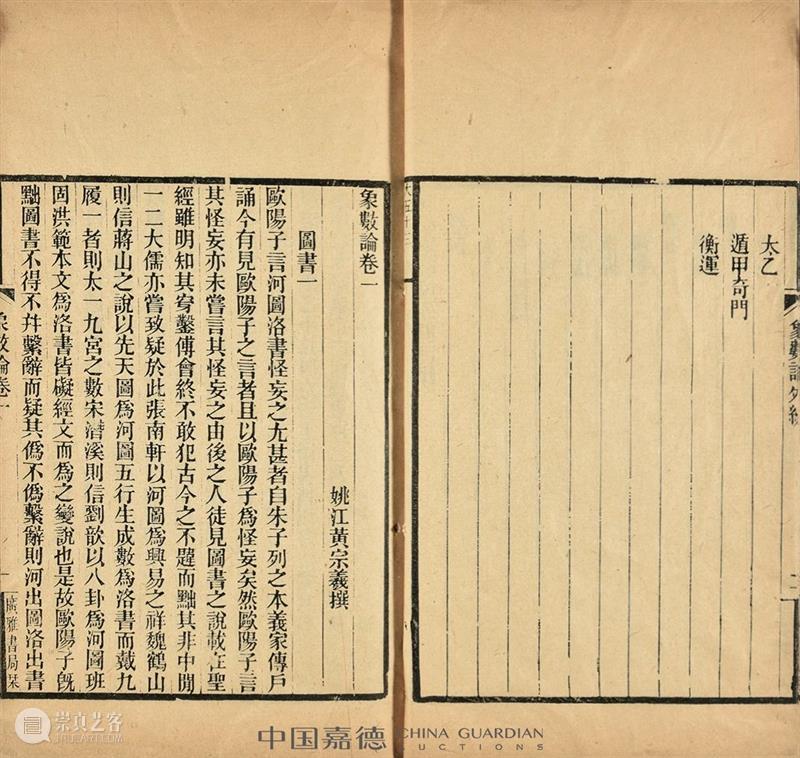 太乙
遁甲奇門
衡運
象數論卷一
姚江黃宗羲撰
圖書一
歐陽子言河圖洛書怪妄之尤甚者自朱子列之本義家傳戶
誦今有見歐陽子之言者且以歐陽子爲怪妄矣然歐陽子言
其怪妄亦未嘗言其怪妄之由後之人徒見圖書之說載在聖
經雖明知其穿鑿傅會終不敢犯古今之不韙而黜其非中閒
一二大儒亦嘗致疑於此張南軒以河圖爲興易之祥魏鶴山
則信蔣山之說以先天圖爲河圖五行生成數爲洛書而戴九
履一者則太一九宮之數宋濳溪則信劉歆以八卦爲河圖班
固洪範本文爲洛書皆礙經文而爲之變說也是故歐陽子旣
黜圖書不得不幷繫辭而疑其僞不僞繫辭則河出圖洛出書
象數論卷一
一
廣雅書局栞
崇真艺客
TRUEART.COM
中国嘉德
CHINA GUARDIAN
AUCTIONS